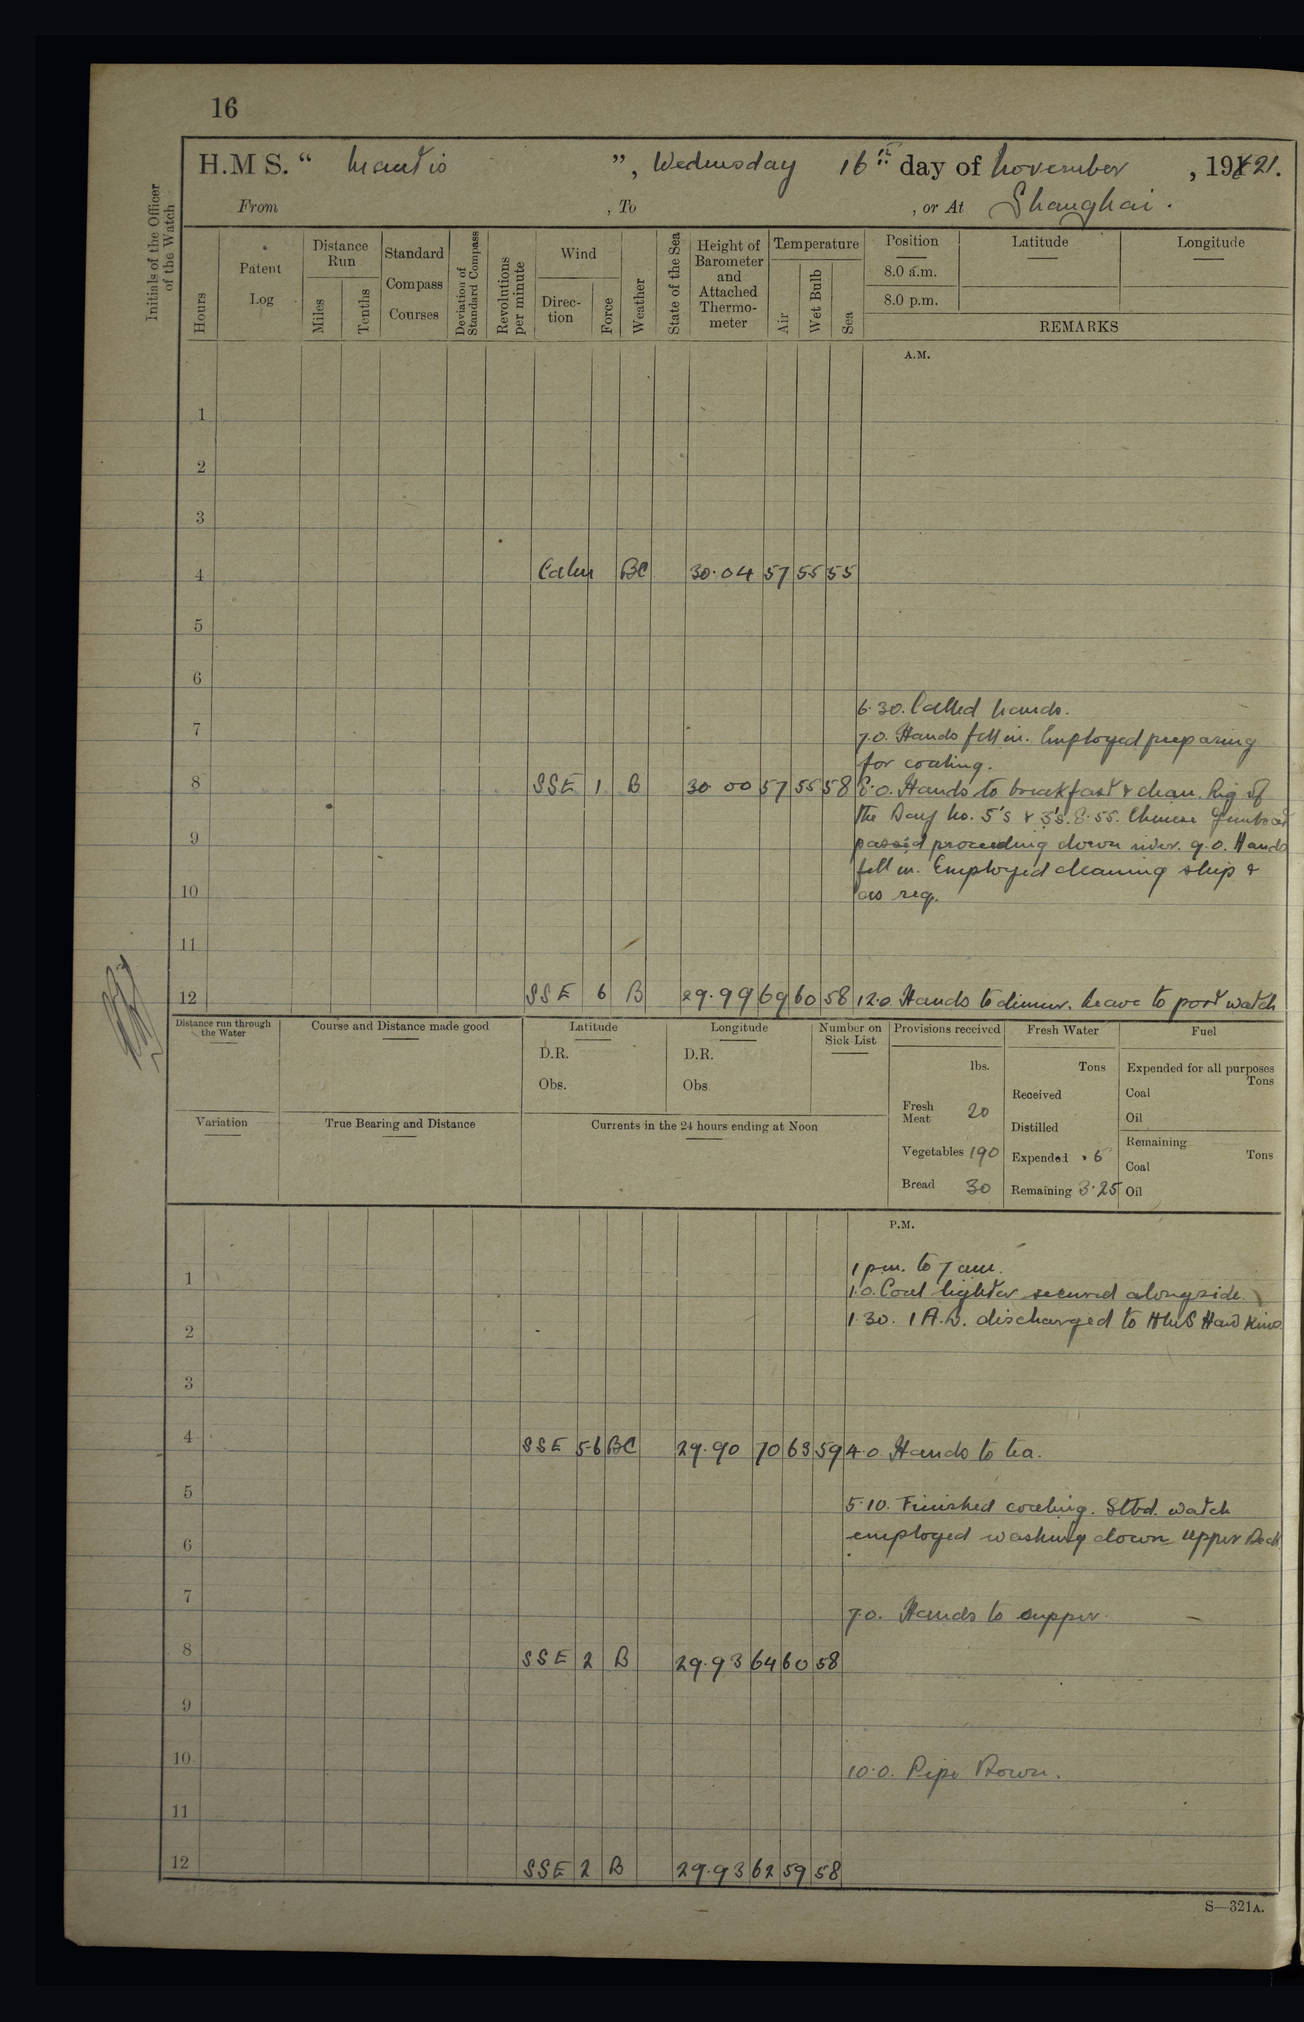 16
H.M S. “ Mantis ”, Wednesday 16th day of November , 1921.
From , To , or At Shanghai.
Initials of the Officer of the Watch
Hours
Patent Log
Distance Run
Miles
Tenths
Standard Compass Courses
Deviation of Standard Compass
Revolutions per minute
Wind
Direc-tion
Force
Weather
State of the Sea
Height of Barometer and Attached Thermo-meter
Temperature
Air
Wet Bulb
Sea
Position
8.0 a.m.
8.0 p.m.
Latitude
Longitude
REMARKS
A.M.
1
2
3
4 Calm BC 30.04 57 55 55
5
6
6.30. Called hands.
7 7.0. Hands fell in. Employed preparing
for coaling.
8 SSE 1 B 30.00 57 55 58 8.0. Hands to breakfast & clean. Rig of
the Day No. 5's & 3's. 8.55. Chinese Gunboat
9 passed proceeding down river. 9.0. Hands
fell in. Employed cleaning ship &
10 as req.
11
12 SSE 6 B 29.99 69 60 58 12.0. Hands to dinner. Leave to port watch
Distance run through the Water
Course and Distance made good
Latitude
D.R.
Obs.
Longitude
D.R.
Obs
Number on Sick List
Provisions received
lbs.
Fresh Meat 20
Vegetables 190
Bread 30
Fresh Water
Tons
Received
Distilled
Expended .5
Remaining 3.25
Fuel
Expended for all purposes
Tons
Coal
Oil
Remaining
Tons
Coal
Oil
Variation
True Bearing and Distance
Currents in the 24 hours ending at Noon
P.M.
1 1 pm. to 7 am.
1.0. Coal lighter secured alongside.
2 1.30. 1 A.B. discharged to HMS Hawkins.
3
4 SSE 5-6 BC 29.90 70 63 59 4.0 Hands to tea.
5 5.10. Finished coaling. Stbd. watch
6 employed washing down Upper Deck
7 7.0. Hands to supper.
8 SSE 2 B 29.93 64 60 58
9
10 10.0. Pipe Down.
11
12 SSE 2 B 29.93 62 59 58
S—321A.